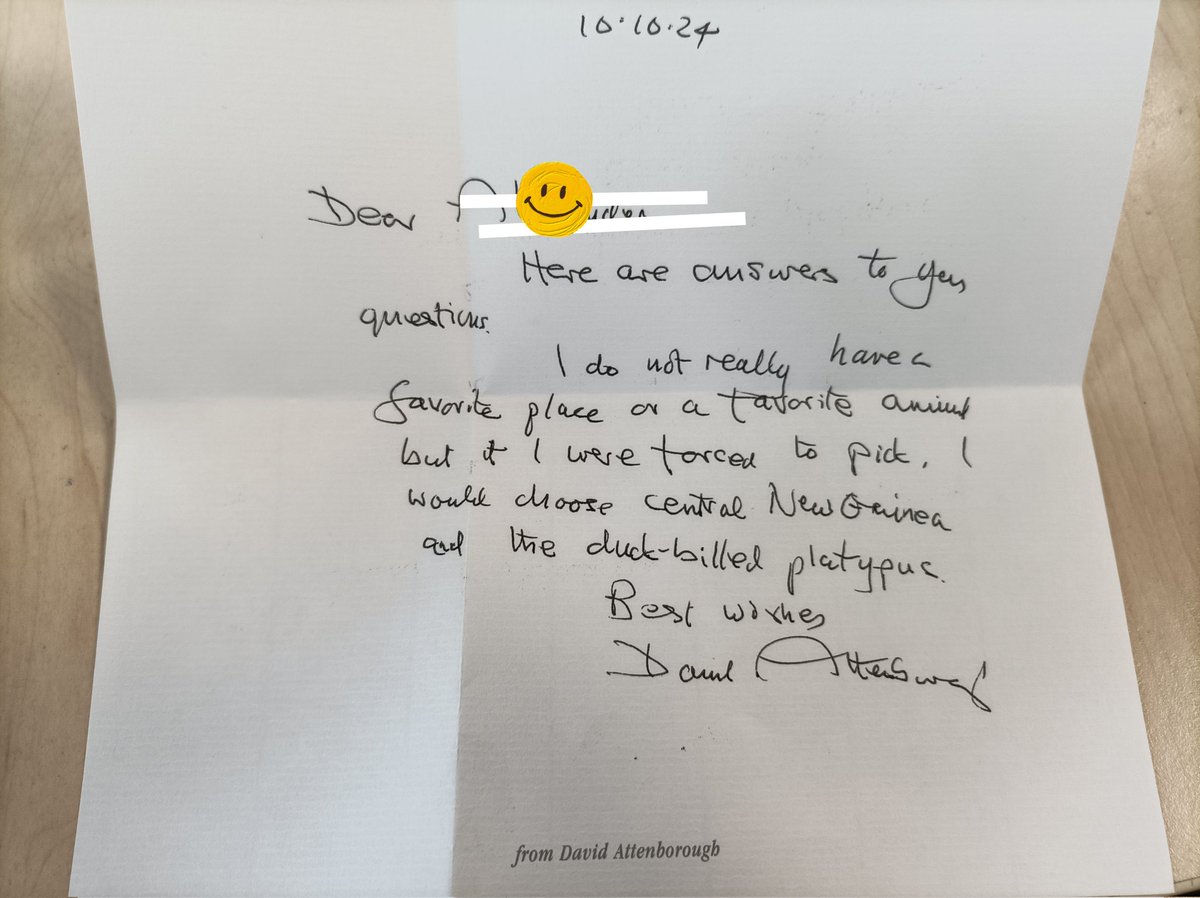 10.10.24
Dear
Here are answers to your
questions.
I do not really have a
favorite place or a favorite animal
but if I were forced to pick, I
would choose central New Guinea
and the duck-billed platypus.
Best wishes
David Attenborough
from David Attenborough